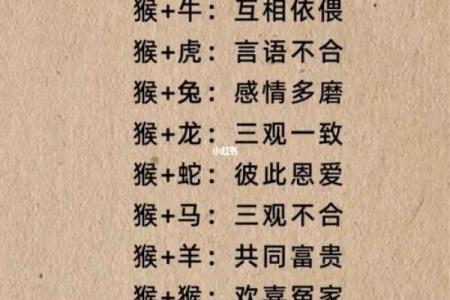 猴+牛：互相依偎
猴+虎：言语不合
猴+兔：感情多磨
猴+龙：三观一致
小红书
猴+蛇：彼此恩爱
猴+马：三观不合
猴+羊：共同富贵
猴+猴：欢喜冤家